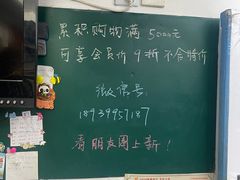 累积购物满5000元
可享会员价9折不含特价
微信号
18939957187
看朋友圈上新！